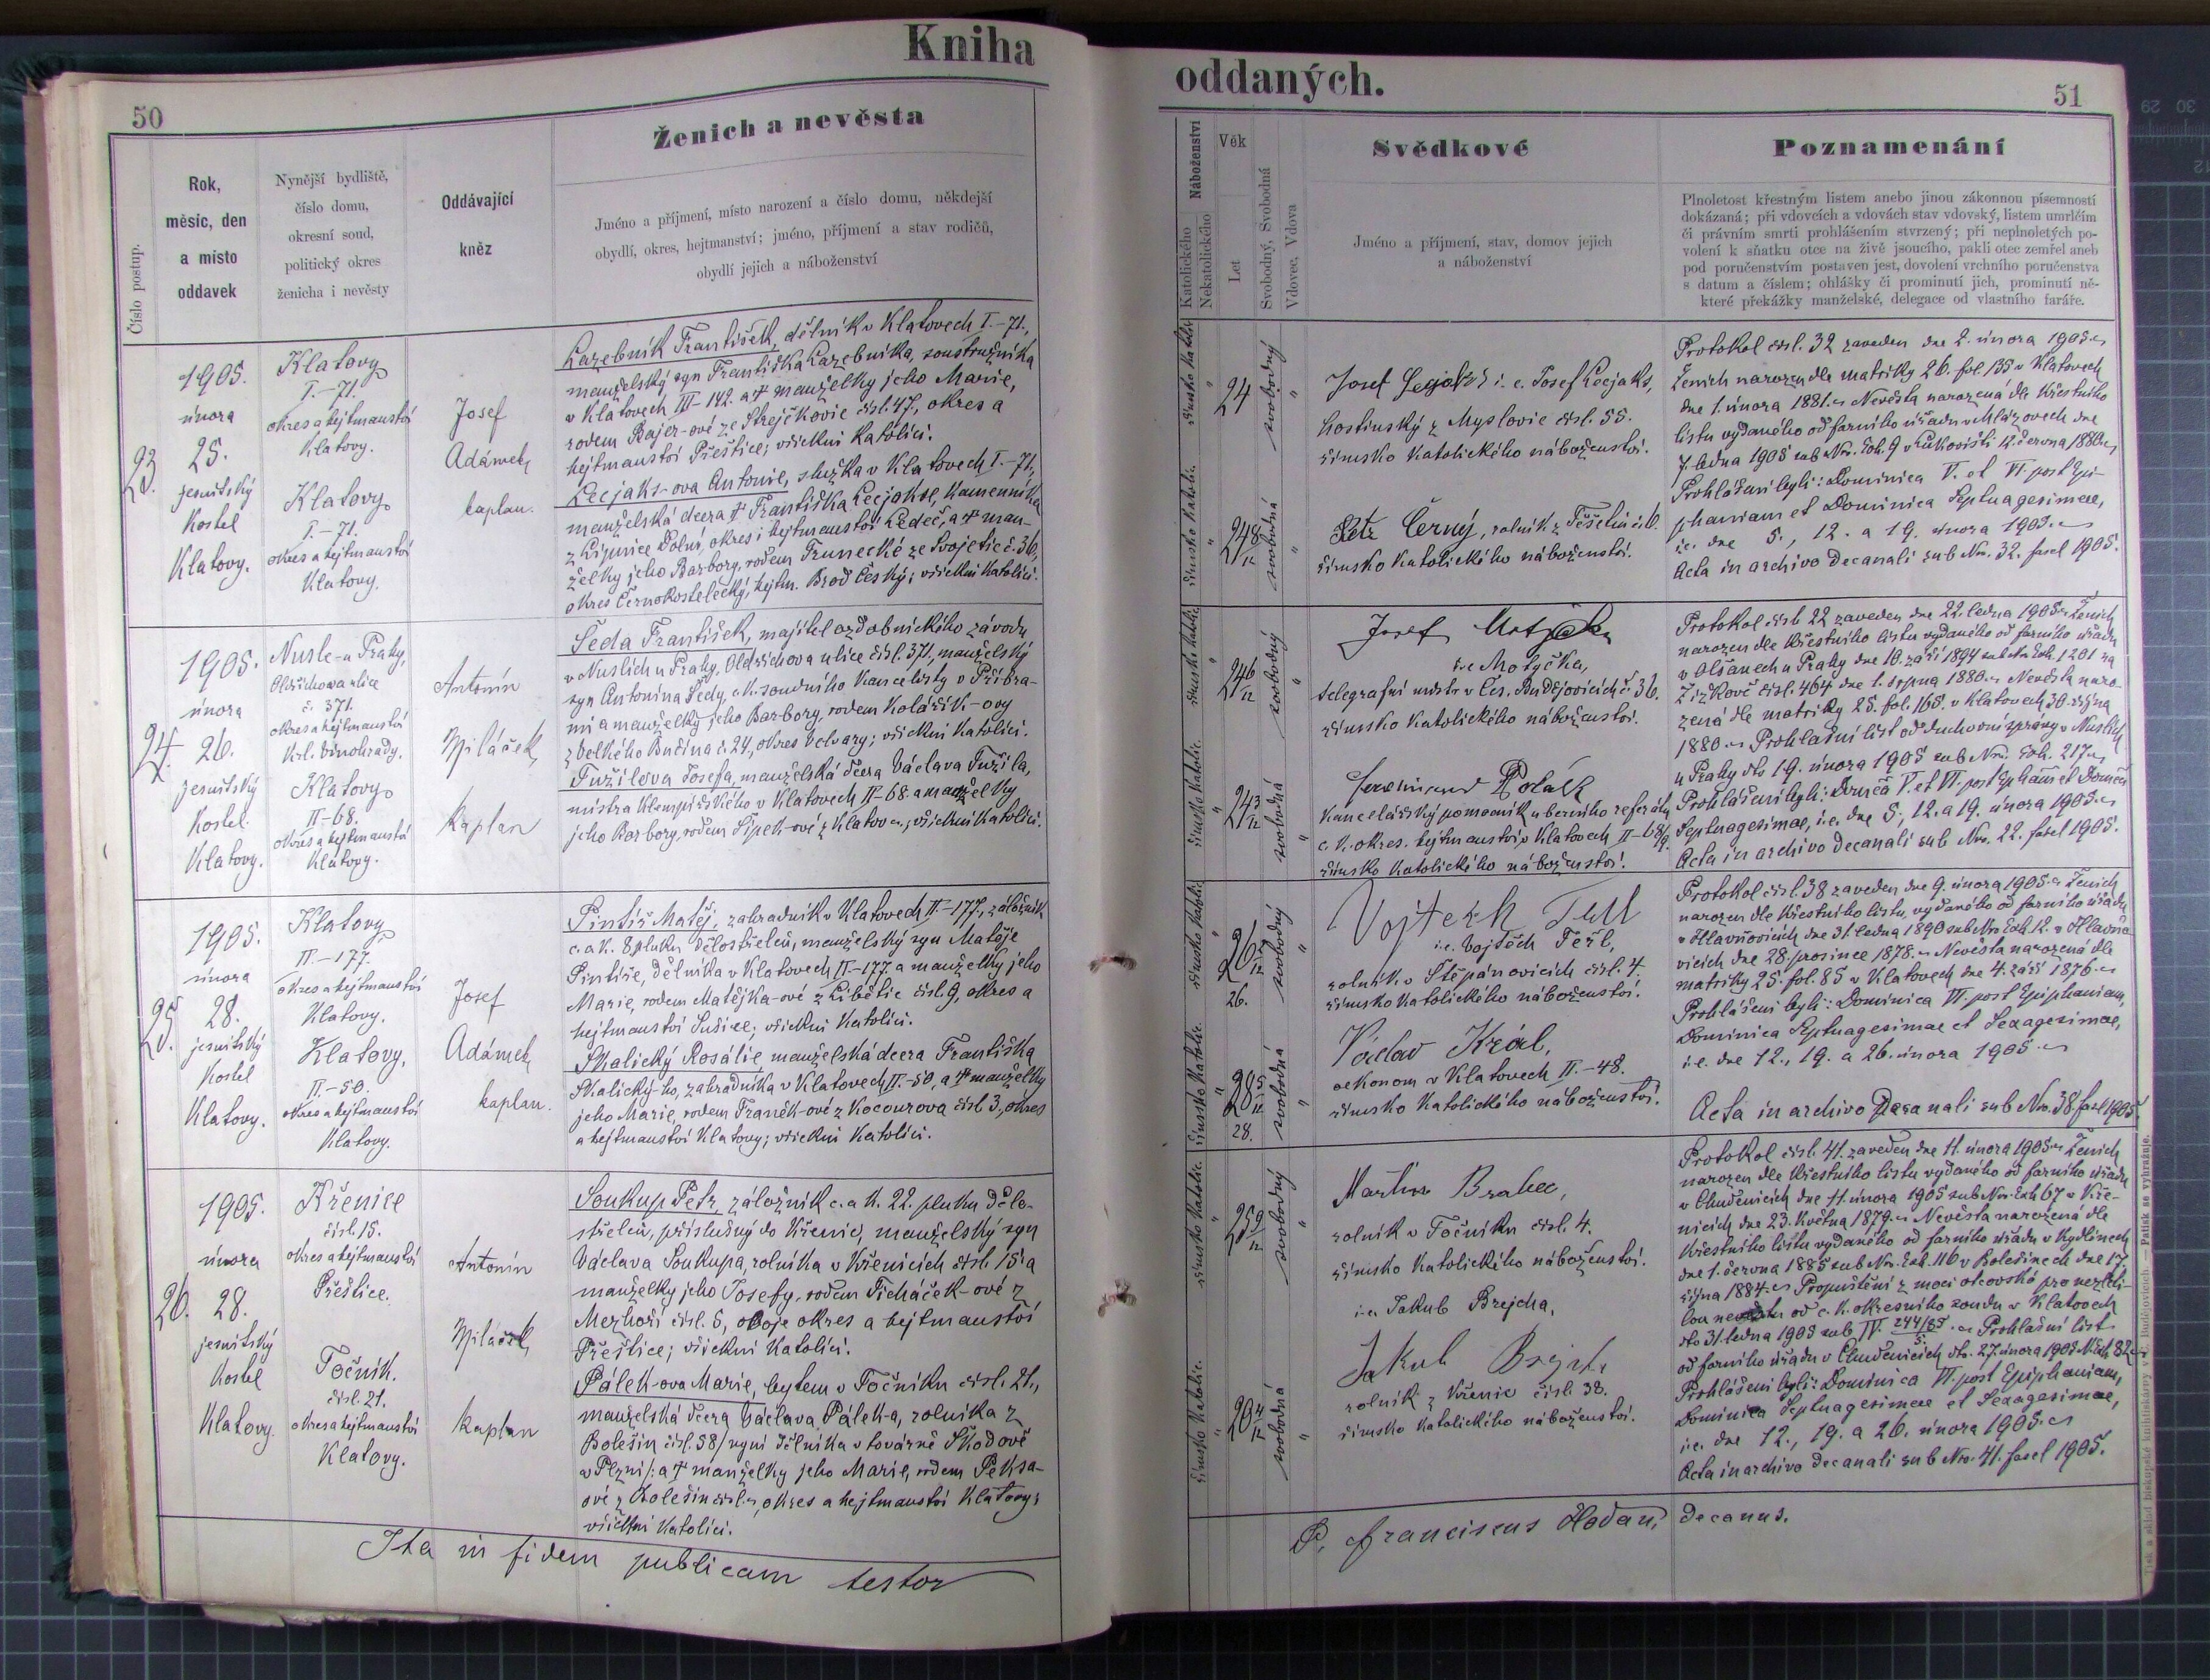 Kniha
50
Číslo postup.
Rok,
měsíc, den
a místo
oddavek
Nynější bydliště,
číslo domu,
okresní soud,
politický okres
ženicha i nevěsty
Oddávající
kněz
Ženich a nevěsta
Jméno a příjmení, místo narození a číslo domu, někdejší
obydlí, okres, hejtmanství; jméno, příjmení a stav rodičů,
obydlí jejich a náboženství
23.
1905.
února
25.
jesuitský
kostel
Klatovy.
Klatovy
I.-71.
okres a hejtmanství
Klatovy.
Klatovy
I.-71.
okres a hejtmanství
Klatovy.
Josef
Adámek
kaplan.
Lazebník František, dělník v Klatovech I.-71.,
manželský syn Františka Lazebníka, soustružníka
v Klatovech III-142. a † manželky jeho Marie,
rodem Bajer-ové ze Strejčkovic čísl. 47, okres a
hejtmanství Přeštice; všickni katolíci.
Lecjaks-ova Antonie, služka v Klatovech I.-71.,
manželská dcera † Františka Lecjakse, kamenníka
z Lipnice Dolní, okres i hejtmanství Ledeč, a † man-
želky jeho Barbory, rodem Trunecké ze Svojetic č. 36,
okres Černokostelecký, hejtm. Brod Český; všickni katolíci.
24.
1905.
února
26.
jesuitský
kostel
Klatovy.
Nusle u Prahy,
Oldřichova ulice
č. 371.
okres a hejtmanství
Krl. Vinohrady.
Klatovy
II-68.
okres a hejtmanství
Klatovy.
Antonín
Miláček
kaplan
Šeda František, majitel ozdobnického závodu
v Nuslích u Prahy, Oldřichova ulice čísl. 371, manželský
syn Antonína Šedy, c. k. soudního kancelisty v Příbra-
mi a manželky jeho Barbory, rodem Kolářík-ovy
z Velkého Bučina č. 24., okres Velvary; všickni katolíci.
Tužilova Josefa, manželská dcera Václava Tužila,
mistra klempířského v Klatovech II-68. a manželky
jeho Barbory, rodem Šípek-ové z Klatov; všickni katolíci.
25.
1905.
února
28.
jesuitský
kostel
Klatovy.
Klatovy
II.-177.
okres a hejtmanství
Klatovy.
Klatovy,
II.-50.
okres a hejtmanství
Klatovy.
Josef
Adámek
kaplan.
Pintíř Matěj, zahradník v Klatovech II.-177., záložník
c. a k. 8 pluku dělostřelců, manželský syn Matěje
Pintíře, dělníka v Klatovech II.-177. a manželky jeho
Marie, rodem Matějka-ové z Libětic čísl. 9, okres a
hejtmanství Sušice; všickni katolíci.
Skalický Rosálie, manželská dcera Františka
Skalický-ho, zahradníka v Klatovech II.-50, a † manželky
jeho Marie, rodem Franěk-ové z Kocourova čísl. 3, okres
a hejtmanství Klatovy; všickni katolíci.
26.
1905.
února
28.
jesuitský
kostel
Klatovy.
Křenice
čísl. 15.
okres a hejtmanství
Přeštice.
Točník.
čísl. 21.
okres a hejtmanství
Klatovy.
Antonín
Miláček
kaplan
Soukup Petr, záložník c. a k. 22. pluku dělo-
střelců, příslušný do Křenic, manželský syn
Václava Soukupa, rolníka v Křenicích čísl. 15 a
manželky jeho Josefy, rodem Ticháček-ové z
Mezhoří čísl. 5, oboje okres a hejtmanství
Přeštice; všickni katolíci.
Pálek-ova Marie, bytem v Točníku čísl. 21.,
manželská dcera Václava Pálek-a, rolníka z
Bolešin čísl. 58/nyní dělníka v továrně Škodově
v Plzni/: a † manželky jeho Marie, rodem Peksa-
ové z Bolešin čísl. , okres a hejtmanství Klatovy;
všickni katolíci.
Ita in fidem publicam testor
oddaných.
51
Náboženství
Katolického
Nekatolického
Věk
Let
Svobodný, Svobodná
Vdovec, Vdova
Svědkové
Jméno a příjmení, stav, domov jejich
a náboženství
Poznamenání
Plnoletost křestným listem anebo jinou zákonnou písemností
dokázaná; při vdovcích a vdovách stav vdovský, listem umrlčím
či právním smrti prohlášením stvrzený; při neplnoletých po-
volení k sňatku otce na živě jsoucího, pakli otec zemřel aneb
pod poručenstvím postaven jest, dovolení vrchního poručenstva
s datum a číslem; ohlášky či prominutí jich, prominutí ně-
které překážky manželské, delegace od vlastního faráře.
římsko katolic.
24
svobodný
římsko katolic.
24 8/12
svobodná
Josef i. e. Josef Lecjaks,
hostinský z Myslovic čísl. 55.
římsko katolického náboženství.
Petr Černý, rolník z Těšetin č. 6.
římsko katolického náboženství.
Protokol čísl. 32 zaveden dne 2. února 1905.
Ženich narozen dle matriky 26. fol. 135 v Klatovech
dne 1. února 1881. Nevěsta narozená dle křestního
listu vydaného od farního úřadu v Mlázovech dne
7. ledna 1905 sub Nro. Exh. 9 v Lukovišti 12. června 1880.
Prohlášeni byli: Dominica V. et VI. post Epi-
phaniam et Dominica Septuagesimae,
i. e. dne 5., 12. a 19. února 1905.
Acta in archivo Decanali sub Nro. 32. fasc 1905.
římsko katolic.
24 6/12
svobodný
římsko katolic.
24 3/12
svobodná
Josef Motyčka
i. e. Motyčka,
telegrafní mistr v Čes. Budějovicích č. 36.
římsko katolického náboženství.
Polák
kancelářský pomocník u berního referátu
c. k. okres. hejtmanství v Klatovech II-68/9.
římsko katolického náboženství.
Protokol čísl. 22 zaveden dne 22. ledna 1905. Ženich
narozen dle křestního listu vydaného od farního úřadu
v Olšanech u Prahy dne 10. září 1894 sub Nro Exh. 1201 na
Žižkově čísl. 464 dne 1. srpna 1880. Nevěsta naro-
zená dle matriky 25. fol. 165. v Klatovech 30. října
1880. Prohlašní list od duchovní správy v Nuslích
u Prahy dto 19. února 1905 sub Nro. Exh. 217.
Prohlášeni byli: Domca V. et VI. post Epiphan. et Domca
Septuagesimae, i. e. dne 5., 12. a 19. února 1905.
Acta in archivo decanali sub Nro. 22. fascl 1905.
římsko katolic.
26
26.
svobodný
římsko katolic.
28 5/12
28.
svobodná
Vojtěch
i. e. Vojtěch Teřl,
rolník v Štěpánovicích čísl. 4.
římsko katolického náboženství.
Václav Král,
oekonom v Klatovech II.-48.
římsko katolického náboženství.
Protokol čísl. 38 zaveden dne 9. února 1905. Ženich
narozen dle křestního listu, vydaného od farního úřadu
v Hlavňovicích dne 31. ledna 1890 sub Nro Exh 12. v Hlavňo-
vicích dne 28. prosince 1878. Nevěsta narozená dle
matriky 25. fol. 85 v Klatovech dne 4. září 1876.
Prohlášeni byli: Dominica VI. post Epiphaniam,
Dominica Septuagesimae et Sexagesimae,
i. e. dne 12., 19. a 26. února 1905.
Acta in archivo Decanali sub Nro. 38 fascl 1905.
římsko katolic.
25 9/12
svobodný
římsko katolic.
20 4/12
svobodná
Martin Brabec,
rolník v Točníku čísl. 4.
římsko katolického náboženství.
i. e. Jakub Brejcha,
Jakub
rolník z Křenic čísl. 38.
římsko katolického náboženství.
Protokol čísl. 41. zaveden dne 11. února 1905. Ženich
narozen dle křestního listu vydaného od farního úřadu
v Chuděnicích dne 11. února 1905 sub Nro. Exh 67 v Kře-
nicích dne 23. května 1879. Nevěsta narozená dle
křestního listu vydaného od farního úřadu v Kydlinech
dne 1. června 1885 sub Nro. Exh. 116 v Bolešinech dne 17.
října 1884. Propuštění z moci otcovské pro nezleti-
lou nevěstu od c. k. okresního soudu v Klatovech
dto 31. ledna 1905 sub IV. 244/85 5. Prohlašní list
od farního úřadu v Chuděnicích dto. 27. února 1905 82
Prohlášeni byli: Dominica VI. post Epiphaniam,
Dominica Septuagesimae et Sexagesimae,
i. e. dne 12., 19. a 26. února 1905.
Acta in archivo decanali sub Nro. 41. fascl 1905.
P. Franciscus Hodan, decanus.
Tisk a sklad biskupské knihtiskárny v Budějovicích. — Patisk se vyhražuje.